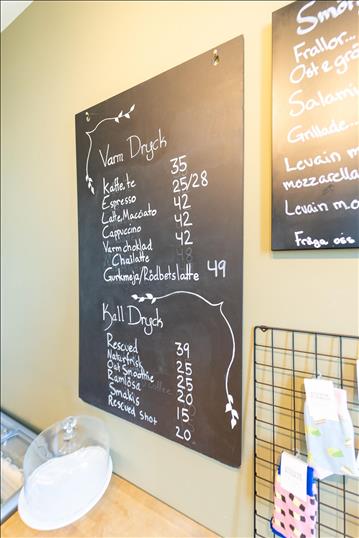 Varm Dryck
Kaffe, te 35
Espresso 25/28
Latte Macciato 42
Cappuccino 42
Varm choklad 42
Chailatte 48
Gurkmeja/Rödbetslatte 49
Kall Dryck
Rescued 39
Naturfrisk 25
Oat Smoothie 25
Ramlösa 20
Smakis 15
Rescued shot 20
Frallor...
Oste
Salami
Grillade...
Levain m
mozzarella
Levain mo
Fråga oss